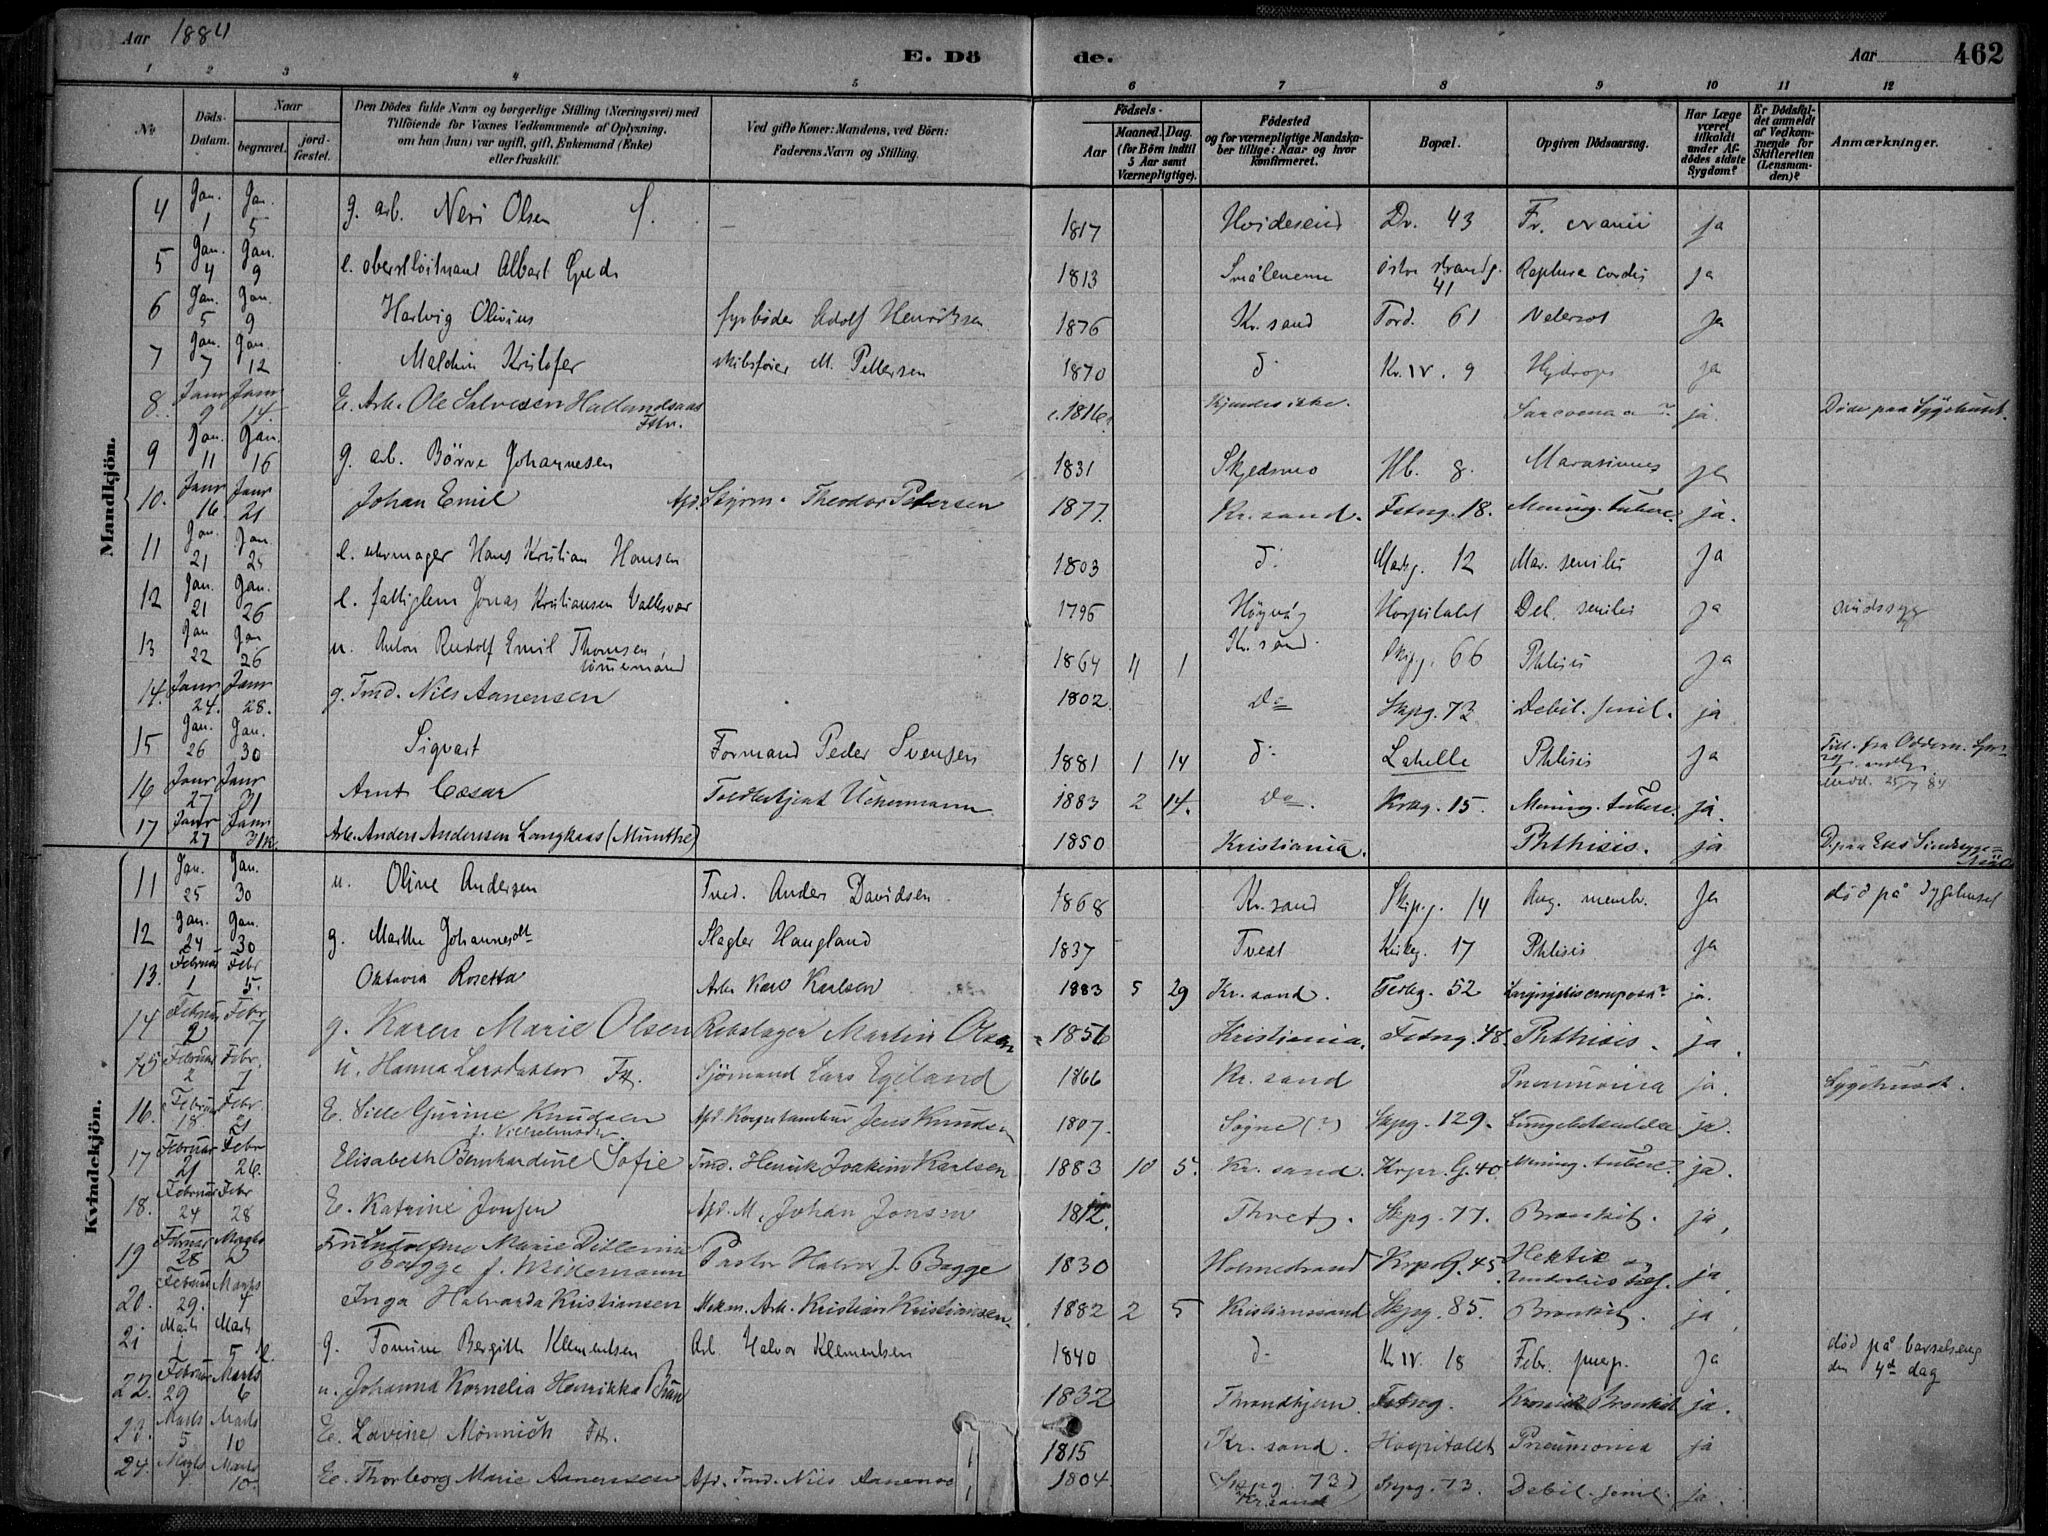 Aar 1884
E. Dö de.
Aar
462
1 2 3 4 5 6 7 8 9 10 11 12
No
Döds-Datum.
Naar
begravet.
jord-fæstet.
Den Dödes fulde Navn og borgerlige Stilling (Næringsvei) med
Tilföiende for Voxnes Vedkommende af Oplysning,
om han (hun) var ugift, gift, Enkemand (Enke)
eller fraskilt.
Ved gifte Koner: Mandens, ved Börn:
Faderens Navn og Stilling.
Födsels-
Aar
Maaned. Dag.
(for Börn indtil
5 Aar samt
Værnepligtige).
Födested
og for værnepligtige Mandskaber tillige: Naar og hvor
konfirmeret.
Bopæl.
Opgiven Dödsaarsag.
Har Læge
været
tilkaldt
under Afdödes sidste
Sygdom?
Er Dödsfaldet anmeldt
af Vedkommende for
Skifteretten
(Lensmanden)?
Anmærkninger.
Mandkjön.
4 Jan. 1 Jan. 5 g. arb. Neri Olsen f. — 1817 Hvideseid Dr. 43 Fr. cranii ja
5 Jan. 4 Jan. 9 e. oberstlöitnant Albert 1813 Smålenene Östre strandg. 41 Ruptura cordis ja
6 Jan. 5 Jan. 9 Hartvig Olivius fyrböder Adolf Henriksen 1876 Kr.sand Tord. 61 ja
7 Jan. 7 Jan. 12 Kristofer skibsförer M. Pettersen 1870 d: Kr. IV. 9 Hydrops ja
8. Janr 9 Janr 14. E. Arb. Ole Salvesen Hallandsaas Ftlv. c. 1816 Kjendes ikke. ja. Döde paa Sygehuset.
9 Jan. 11 Jan. 16 g. arb. Börre Johannesen 1831 Skjedsmo Hb. 8. Marasmus ja
10. Janr 16. Janr 21 Johan Emil Afd. Styrm. Theodor Petersen 1877. Kr.sand. Festng. 18. Mening. tuberc. ja.
11 Jan. 21 Jan. 25 e. urmager Hans Kristian Hansen 1803 d: Markg. 12 Mar. senilis ja
12 Jan. 21 Jan. 26 e. fattiglem Jonas Kristiansen Vallesvær 1795 Högvåg Hospitalet Deb. senilis ja sindssyg
13 Jan 22 Jan 26 u. Anton Rudolf Emil Thomsen, tömmermand 1864 11 1 Kr.sand Skipg. 66 Phtisis ja
14. Janr 24. Janr 28. g. Tmd. Nils Aanensen 1802. Do Skpg. 73 Debil. senil. ja
15 Jan. 26 Jan. 30 Sigvart Formand Peder Svensen 1881 1 14 d: Lahelle Phtisis ja Till. fra Oddern.
16 Janr 27 Janr 31 Arnt Cæsar Toldbetjent Uckermann 1883 2 14. Do. Krkg. 15. Mening. tuberc. ja.
17 Janr 27 Janr 31 Arb. Anders Andersen Langkaas (Munthe) 1850 Kristiania. Phthisis. ja
Kvindekjön.
11 Jan. 25 Jan. 30 u. Oline Andersen Tmd. Anders Davidsen 1868 Kr.sand Skipg. 14 Ang. membr. ja död på Sygehuset
12 Jan. 24 Jan. 30 g. Marthe Johannesdt Slagter Haugland 1837 Tvedt Kirkeg. 17 Phtisis ja
13. Februar 1 Febr 5. Oktavia Rosetta Arb. Karl Karlsen 1883 5 29 Kr.sand. Festng. 52 Laryngitis crouposa ja.
14 Februar 2 Febr 7 g. Karen Marie Olsen Rebslager Martin Olsen 1856 Kristiania. Festng. 48. Phthisis. ja.
15 Februar 2 Febr. 7 u. Hanna Larsdatter Ft. Sjömand Lars Egeland 1866 Kr.sand Pneumonia ja. Sygehuset.
16. Februar 18 Febr. 21 E. Sille Gurine Knudsen f. Vilhelmsdr. Afd. Korpstambur Jens Knudsen 1807. Søgne (?) Skpg. 129. Lungebetændelse ja.
17 Februar 21 Febr 26. Elisabeth Bernhardine Sofie Tmd. Henrik Joakim Karlsen 1883 10 5. Kr.sand. Krpr. G. 40 Mening. tuberc. ja.
18. Februar 24 Febr 28 E. Katrine Jonsen Afd. M. Johan Jonsen 1812. Thvet. Skpg. 77. Bronkit. ja,
19 Februar 28 Marts 2 Fru Marie Ditlevine Bagge f. Widemann Pastor Halvor J. Bagge 1830 Holmestrand Krpr. G. 45 Hektik og Underlivs ja,
20. Februar 29. Marts 7 Inga Halvarda Kristiansen Mekm. Arb. Kristian Kristiansen 1882 2 5 Kristianssand Skpg. 85. Bronkit. ja,
21 Marts 1 Marts 5 g. Tomine Bergith Klementsen Arb. Halvor Klementsen 1840 d: Kr IV. 18 Febr. puerp. ja död på barselseng den 4de dag
22. Februar 29 Marts 6 u. Johanna Kornelia Henrikka Brun 1832 Throndhjem Festng. Kronisk Bronkit ja.
23. Marts 5 Marts 10 E. Lavine Mönnich Ft. 1815 Kr.sand. Hospitalet Pneumonia ja
24. Marts 7 Marts 10. E. Thorborg Marie Aanensen Afd. Tmd. Nils Aanensen 1804. (Skpg. 73) Kr.sand Skpg. 73. Debil. senil. ja.